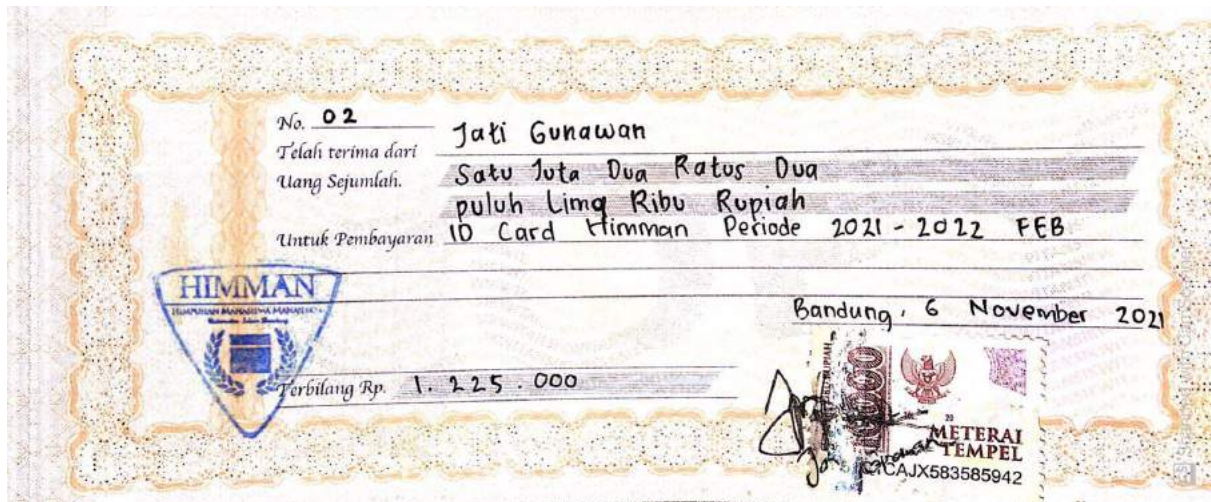 No. 02
Telah terima dari Jati Gunawan
Uang Sejumlah. Satu Juta Dua Ratus Dua
puluh Lima Ribu Rupiah
Untuk Pembayaran ID Card Himman Periode 2021 - 2022 FEB
HIMMAN
HIMPUNAN MAHASISWA MANAJEMEN
Universitas Islam Bandung
Bandung, 6 November 2021
Terbilang Rp. 1.225.000
10000
METERAI
TEMPEL
CAJX583585942